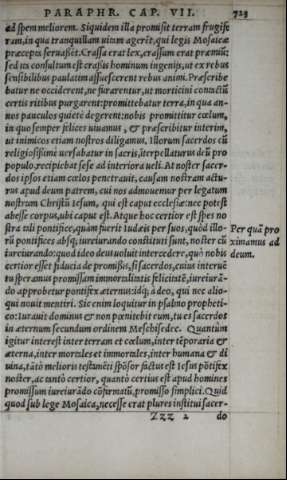 PARAPHR. CAP. VII.
723
ad spem meliorem. Siquidem illa promisit terram frugife
ram, in qua tranquillam uitam ageret, qui legis Mosaicæ
præcepta seruasset. Crassa erat lex, crassum erat præmiũ:
sed ita consultum est crassis hominum ingenijs, ut ex rebus
sensibilibus paulatim assuescerent rebus animi. Præscribe
batur ne occiderent, ne furarentur, ut morticini contactũ
certis ritibus purgarent: promittebatur terra, in qua an-
nos pauculos quiete degerent: nobis promittitur cœlum,
in quo semper felices uiuamus, & præscribitur interim,
ut inimicos etiam nostros diligamus. Illorum sacerdos cũ
religiosissime uersabatur in sacris, interpellaturus deũ pro
populo, recipiebat sese ad interiora ueli. At noster sacer-
dos ipsos etiam cœlos penetrauit, causam nostram actu-
rus apud deum patrem, cui nos admouemur per legatum
nostrum Christũ Iesum, qui est caput ecclesiæ: nec potest
abesse corpus, ubi caput est. Atque hoc certior est spes no
stra tali pontifice, quàm fuerit Iudæis per suos, quòd illo-
rũ pontifices absq; iureiurando constituti sunt, noster cũ
iureiurando: quod ideo deus uoluit intercedere, quò nobis
certior esset fiducia de promissis, si sacerdos, cuius interuẽ
tu speramus promissam immortalitatis felicitatẽ, iureiurã-
do approbetur pontifex æternus: idq; à deo, qui nec alio-
qui nouit mentiri. Sic enim loquitur in psalmo propheti-
co: Iurauit dominus & non pœnitebit eum, tu es sacerdos
in æternum secundum ordinem Melchisedec. Quantùm
igitur interest inter terram et cœlum, inter tẽporaria &
æterna, inter mortales et immortales, inter humana & di
uina, tãtò melioris testamẽti spõsor factus est Iesus põtifex
noster, ac tantò certior, quantò certius est apud homines
promissum iureiurãdo cõfirmatũ, promisso simplici. Quid
quod sub lege Mosaica, necesse erat plures institui sacer-
Zzz 2
do
Per quã pro
ximamus ad
deum.